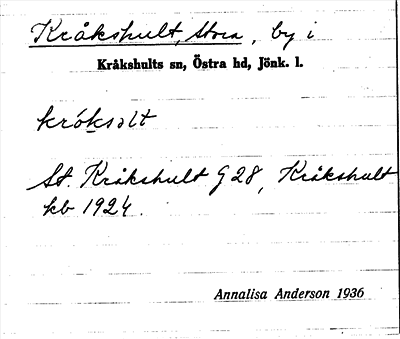 Kråkshult, Stora, by i
Kråkshults sn, Östra hd, Jönk. l.
króksəlt
St. Kråkshult G 28, Kråkshult
kb 1924.
Annalisa Anderson 1936